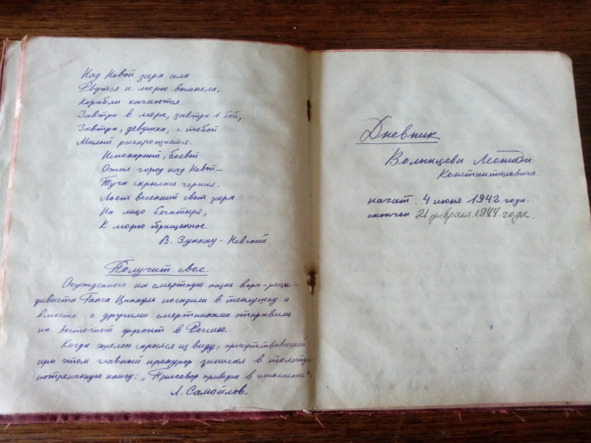 Над Невой заря ала
Рвутся к морю вымпела,
Корабли качаются.
Завтра в море, завтра в бой,
Завтра, девушка, с тобой
Милый распрощается.
Непокорный, боевой
Город над Невой –
Туча скрылась черная.
Льёт весенний свет заря
На лицо богатыря,
К морю обращенное.
В. Зуккау-Невский.
Получит свое.
Осужденного на смертную казнь вора-реци-
дивиста Ганса Циннун посадили в теплушку и
вместе с другими смертниками отправили
на восточный фронт в Россию.
Когда эшелон скрылся из виду, присутствовавший
при этом главный прокурор записал в толстую
потрепанную книгу: „Приговор приведен в исполнение".
Л. Самойлов.
Дневник
Волынцева Леонида
Константиновича
начат: 4 июня 1942 года.
окончен 21 февраля 1944 года.